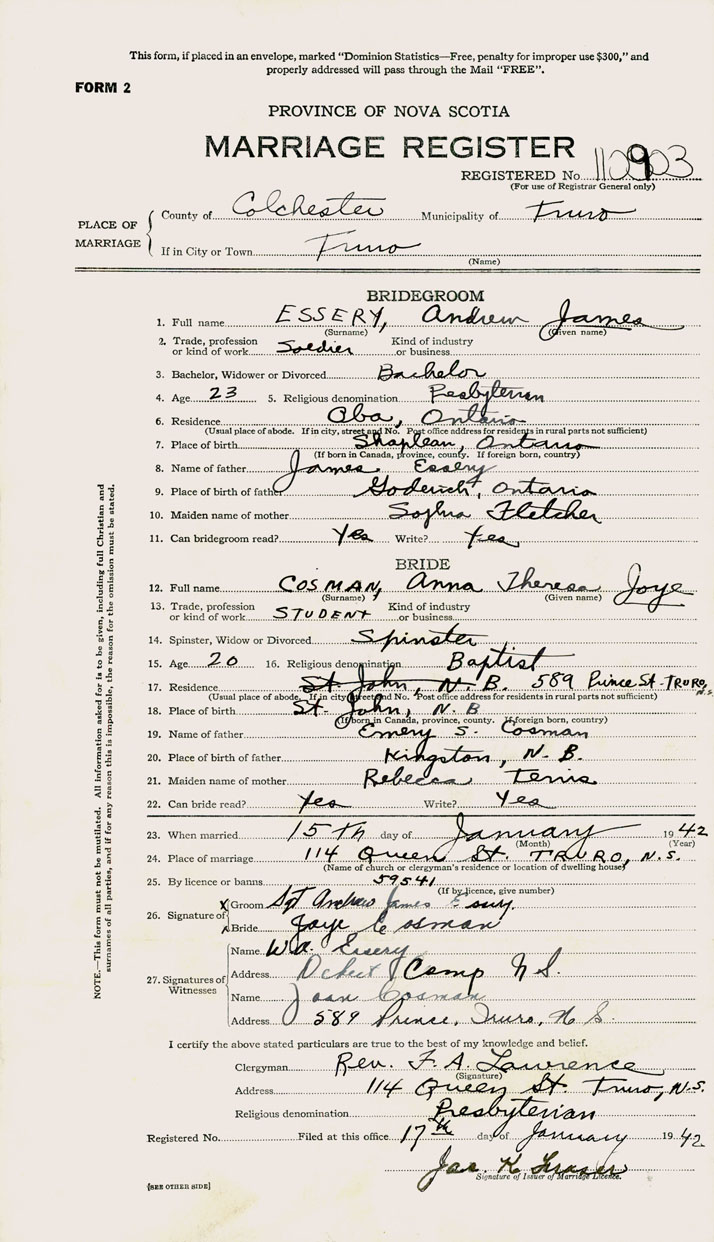 This form, if placed in an envelope, marked "Dominion Statistics—Free, penalty for improper use $300," and
properly addressed will pass through the Mail "FREE".
FORM 2
PROVINCE OF NOVA SCOTIA
MARRIAGE REGISTER
REGISTERED No. 110903
(For use of Registrar General only)
PLACE OF MARRIAGE
County of Colchester Municipality of Truro
If in City or Town Truro
(Name)
BRIDEGROOM
1. Full name ESSERY, Andrew James
(Surname) (Given name)
2. Trade, profession or kind of work Soldier Kind of industry or business
3. Bachelor, Widower or Divorced Bachelor
4. Age 23 5. Religious denomination Presbyterian
6. Residence Oba, Ontario
(Usual place of abode. If in city, street and No. Post office address for residents in rural parts not sufficient)
7. Place of birth Shaplean, Ontario
(If born in Canada, province, county. If foreign born, country)
8. Name of father James Essery
9. Place of birth of father Goderich, Ontario
10. Maiden name of mother Sophia Fletcher
11. Can bridegroom read? Yes Write? Yes
BRIDE
12. Full name COSMAN, Anna Theresa Joye
(Surname) (Given name)
13. Trade, profession or kind of work STUDENT Kind of industry or business
14. Spinster, Widow or Divorced Spinster
15. Age 20 16. Religious denomination Baptist
17. Residence St. John, N. B. 589 Prince St. TRURO, N.S.
(Usual place of abode. If in city, street and No. Post office address for residents in rural parts not sufficient)
18. Place of birth St. John, N. B
(If born in Canada, province, county. If foreign born, country)
19. Name of father Emery S. Cosman
20. Place of birth of father Kingston, N. B.
21. Maiden name of mother Rebecca
22. Can bride read? Yes Write? Yes
23. When married 15th day of January 1942
(Month) (Year)
24. Place of marriage 114 Queen St. TRURO, N.S.
(Name of church or clergyman's residence or location of dwelling house)
25. By licence or banns 59541
(If by licence, give number)
26. Signature of
X Groom Sgt Andrew James Essery
X Bride Joye Cosman
27. Signatures of Witnesses
Name W. A. Essery
Address Debert Camp N S.
Name Joan Cosman
Address 589 Prince, Truro, N S.
I certify the above stated particulars are true to the best of my knowledge and belief.
Clergyman Rev. F. A. Lawrence
(Signature)
Address 114 Queen St. Truro, N.S.
Religious denomination Presbyterian
Registered No. Filed at this office 17th day of January 1942
Jas. K Fraser
Signature of Issuer of Marriage Licence.
[SEE OTHER SIDE]
NOTE.—This form must not be mutilated. All information asked for is to be given, including full Christian and
surnames of all parties, and if for any reason this is impossible, the reason for the omission must be stated.